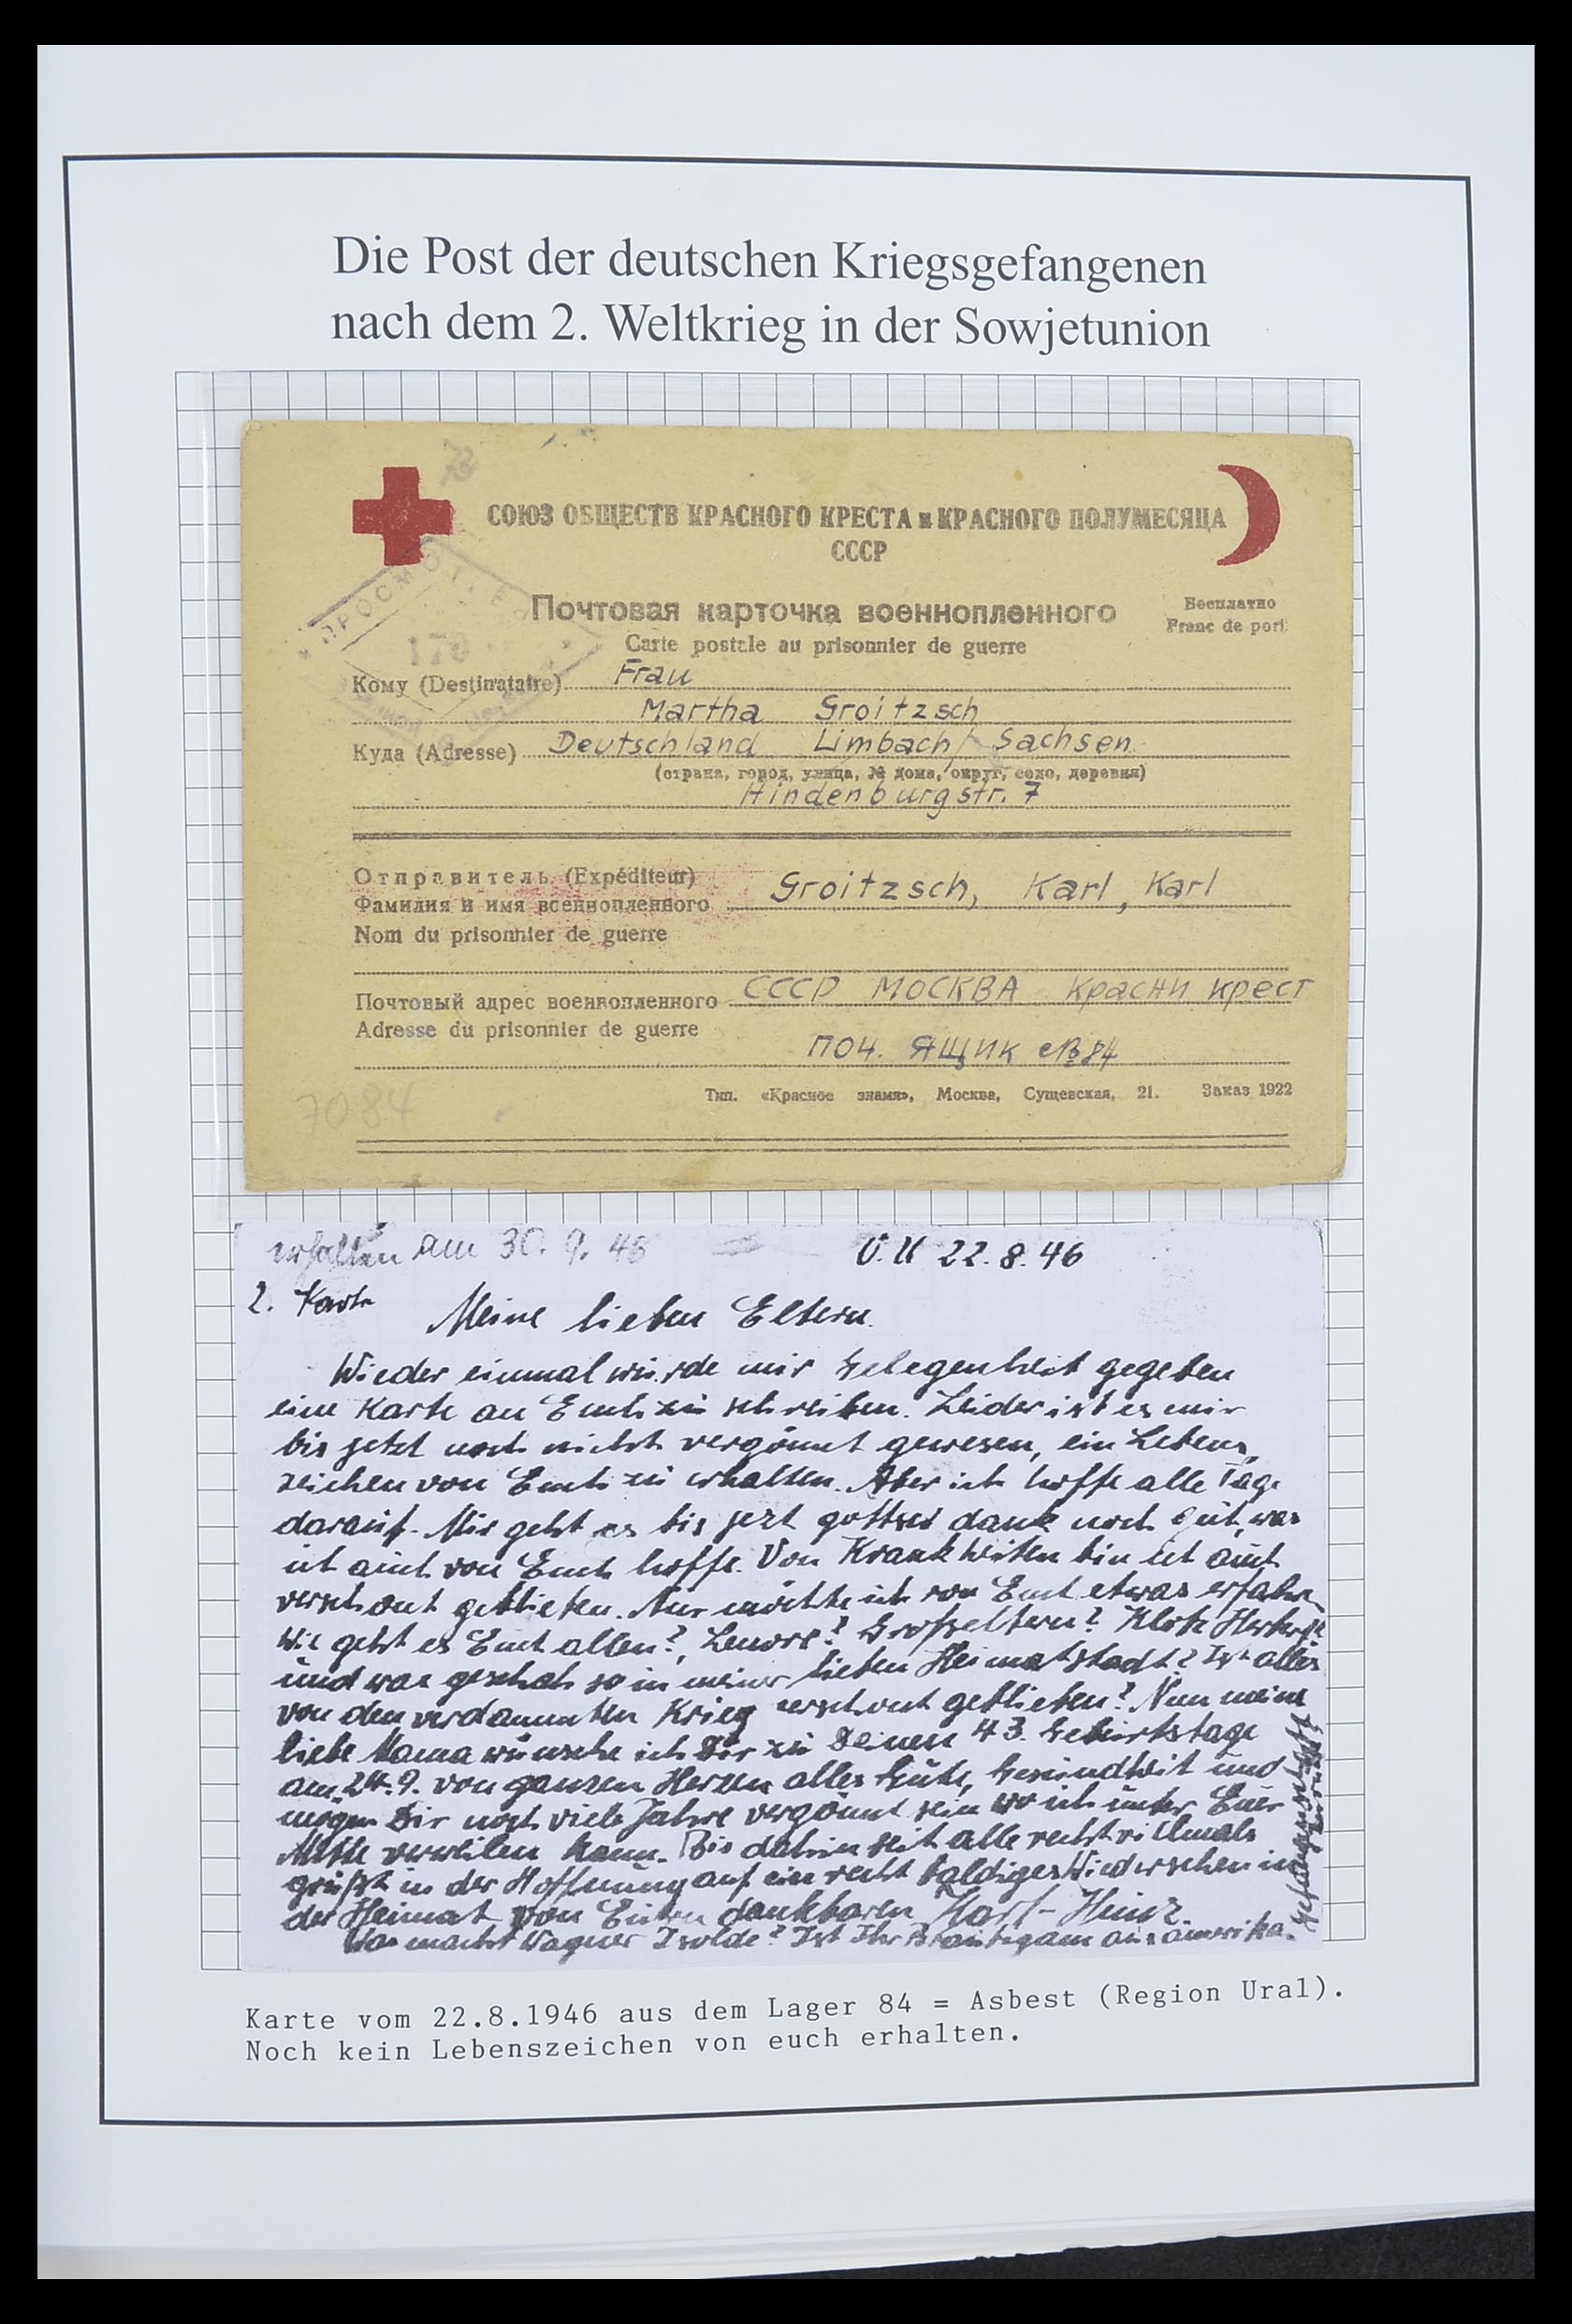 Die Post der deutschen Kriegsgefangenen
nach dem 2. Weltkrieg in der Sowjetunion
СОЮЗ ОБЩЕСТВ КРАСНОГО КРЕСТА и КРАСНОГО ПОЛУМЕСЯЦА
СССР
Почтовая карточка военнопленного
Carte postale au prisonnier de guerre
Бесплатно
Franc de port
170
Кому (Destinataire) Frau
Martha Groitzsch
Куда (Adresse) Deutschland Limbach/ Sachsen
(страна, город, улица, № дома, округ, село, деревня)
Hindenburgstr. 7
Отправитель (Expéditeur)
Фамилия и имя военнопленного Groitzsch, Karl, Karl
Nom du prisonnier de guerre
Почтовый адрес военнопленного СССР МОСКВА Красни крест
Adresse du prisonnier de guerre
поч. ящик № 84
7084
Тип. «Красное знамя», Москва, Сущевская, 21. Заказ 1922
erhalten am 30. 9. 46
U. U 22. 8. 46
2. Karte
Meine lieben Eltern
Wieder einmal wurde mir Gelegenheit gegeben
eine Karte an Euch zu schreiben. Leider ist es mir
bis jetzt noch nicht vergönnt gewesen, ein Lebens
zeichen von Euch zu erhalten. Aber ich hoffe alle Tage
darauf. Mir geht es bis jezt gottsei dank noch gut, was
ich auch von Euch hoffe. Von Krankheiten bin ich auch
verschont geblieben. Nur möchte ich von Euch etwas erfahren
Wie geht es Euch allen?, Lenore? Großeltern?
und was geschah so in meiner lieben Heimatstadt? Ist alles
von den verdammten Krieg verschont geblieben? Nun meine
liebe Mama wünsche ich Dir zu Deinen 43. Geburtstage
am 24. 9. von ganzen Herzen alles Gute, Gesundheit und
mögen Dir noch viele Jahre vergönnt sein wo ich unter Euer
Mitte verweilen kann. Bis dahin seit alle recht vielmals
grüßt in der Hoffnung auf ein recht baldiges Wiedersehen in
der Heimat von Euren dankbaren Karl-Heinz
Was macht Wagner Isolde? Ist Ihr Bräutigam aus amerika.
Karte vom 22.8.1946 aus dem Lager 84 = Asbest (Region Ural).
Noch kein Lebenszeichen von euch erhalten.